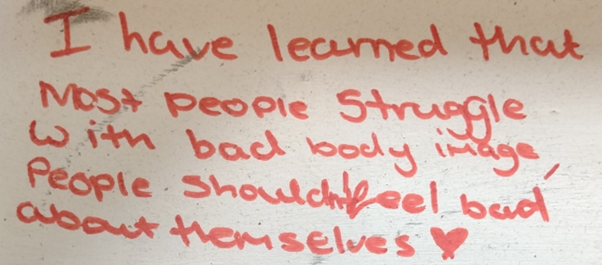 I have learned that
Most people struggle
with bad body image,
People shouldn't feel bad
about themselves ♥